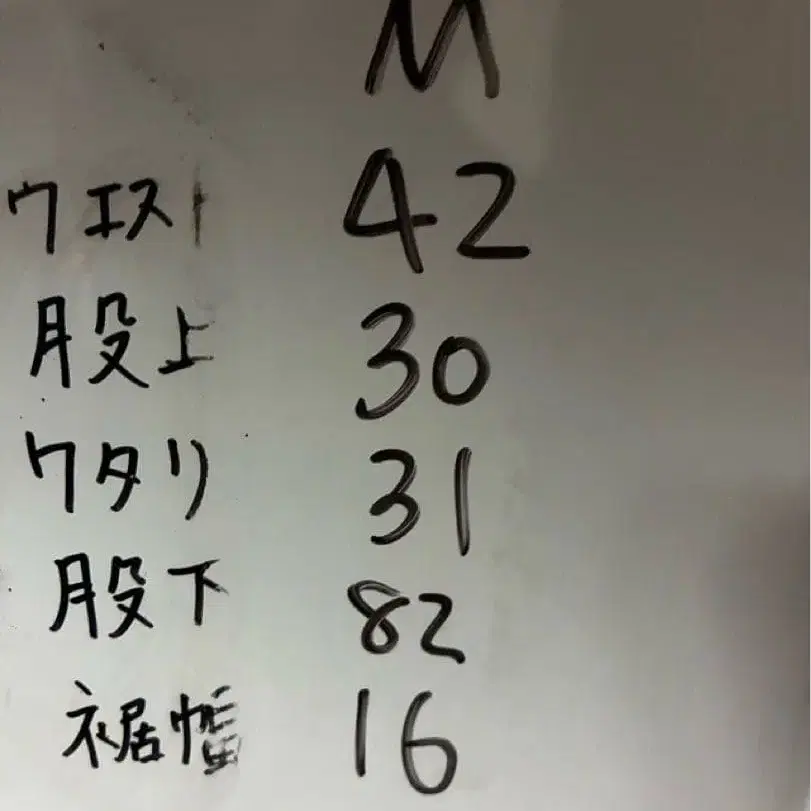 M
ウエスト 42
股上 30
ワタリ 31
股下 82
裾幅 16